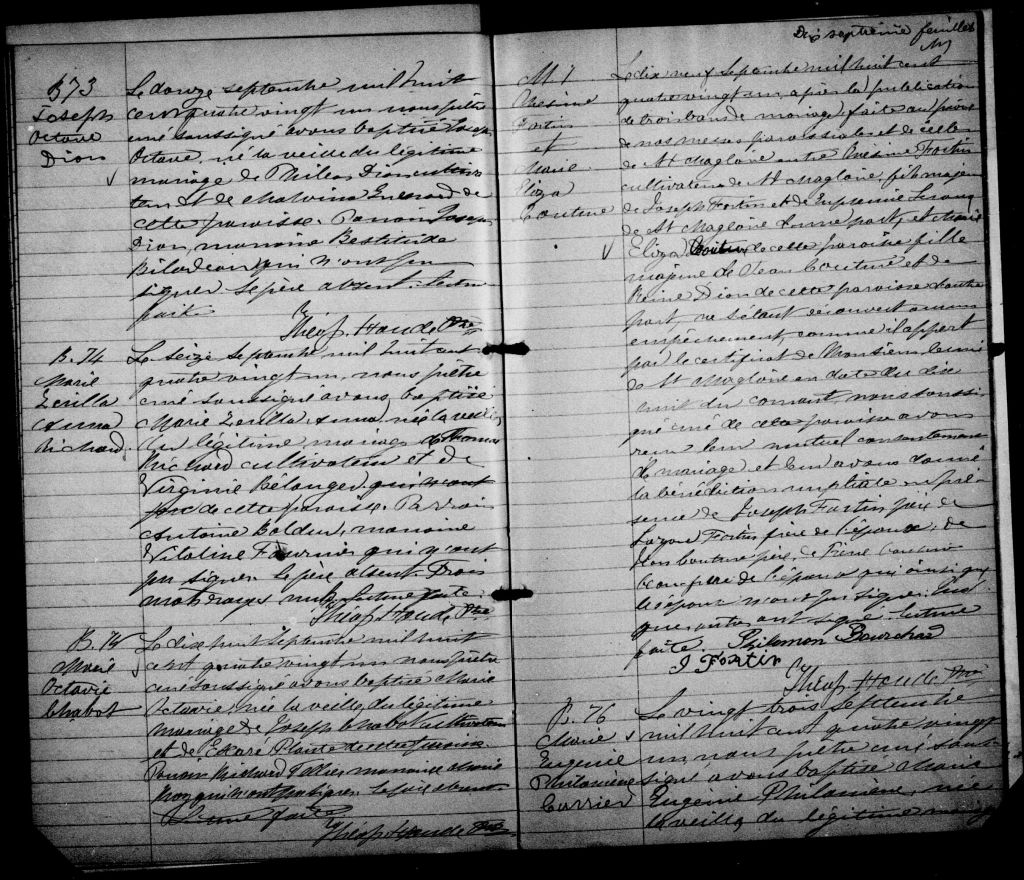 B73
Joseph
Octave
Dion
Le douze septembre mil huit
cent quatre vingt un nous prêtre
curé soussigné avons baptisé Joseph
Octave, né la veille du légitime
mariage de Dion cultiva
teur et de Malvina de
cette paroisse. Parrain Joseph
Dion, marraine
Bilodeau qui n'ont pu
signer le père absent. Lecture
faite
Théop. Houde Ptre
B. 74
Marie
Zerilla
Anna
Richard
Le seize septembre mil huit cent
quatre vingt un, nous prêtre
curé soussigné avons baptisé
Marie Zerilla Anna, née la veille
du légitime mariage de Thomas
Richard cultivateur et de
Virginie Belanger qui n'ont
de cette paroisse. Parrain
Antoine marraine
Fournier qui n'ont
pu signer le père absent. Trois
mots rayés nuls. Lecture faite.
Théop. Houde Ptre
B. 75
Marie
Octavie
Chabot
Le dix huit septembre mil huit
cent quatre vingt un nous prêtre
curé soussigné avons baptisé Marie
Octavie, née la veille, du légitime
mariage de Joseph Chabot cultivateur
et de Plante de cette paroisse.
Parrain Richard marraine Marie
qui n'ont pu signer le père absent
Lecture faite
Théop. Houde Ptre
Dix septième feuillet
M. 7
Onésime
Fortin
et
Marie
Eliza
Couture
Le dix neuf Septembre mil huit cent
quatre vingt un, après la publication
de trois bans de mariage, faite au prône
de nos messes paroissiales et de celles
de St Magloire entre Onésime Fortin
cultivateur de St Magloire, fils majeur
de Joseph Fortin et de Euphemie
de St Magloire d'une part, et Marie
Eliza Couture de cette paroisse fille
majeure de Jean Couture et de
Reine Dion de cette paroisse d'autre
part, ne s'étant découvert aucun
empêchement, comme il appert
par le certificat de Monsieur le curé
de St Magloire en date du dix
huit du courant, nous soussi
gné curé de cette paroisse avons
reçu leur mutuel consentement
de mariage et leur avons donné
la bénédiction nuptiale en pré
sence de Joseph Fortin père de
Fortin frère de l'époux, de
Jean Couture père, de
beau frère de l'épouse qui ainsi que
l'époux n'ont pu signer. Les
autres ont signé. Lecture
faite. Philemon
J Fortin
Théop. Houde Ptre
B. 76
Marie
Eugenie
Philomène
Carrier
Le vingt trois Septembre
mil huit cent quatre vingt
un, nous prêtre curé sous
signé avons baptisé Marie
Eugénie Philomène, née
la veille, du légitime mari